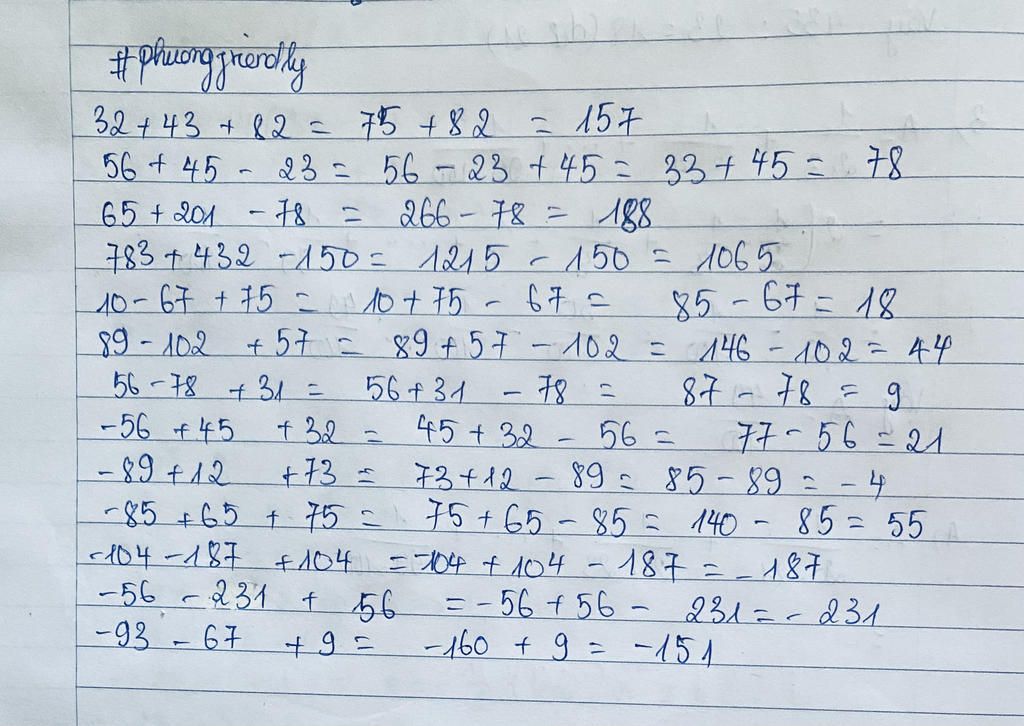 #phuongfriendly
32 + 43 + 82 = 75 + 82 = 157
56 + 45 - 23 = 56 - 23 + 45 = 33 + 45 = 78
65 + 201 - 78 = 266 - 78 = 188
783 + 432 - 150 = 1215 - 150 = 1065
10 - 67 + 75 = 10 + 75 - 67 = 85 - 67 = 18
89 - 102 + 57 = 89 + 57 - 102 = 146 - 102 = 44
56 - 78 + 31 = 56 + 31 - 78 = 87 - 78 = 9
-56 + 45 + 32 = 45 + 32 - 56 = 77 - 56 = 21
-89 + 12 + 73 = 73 + 12 - 89 = 85 - 89 = -4
-85 + 65 + 75 = 75 + 65 - 85 = 140 - 85 = 55
-104 - 187 + 104 = -104 + 104 - 187 = -187
-56 - 231 + 56 = -56 + 56 - 231 = -231
-93 - 67 + 9 = -160 + 9 = -151